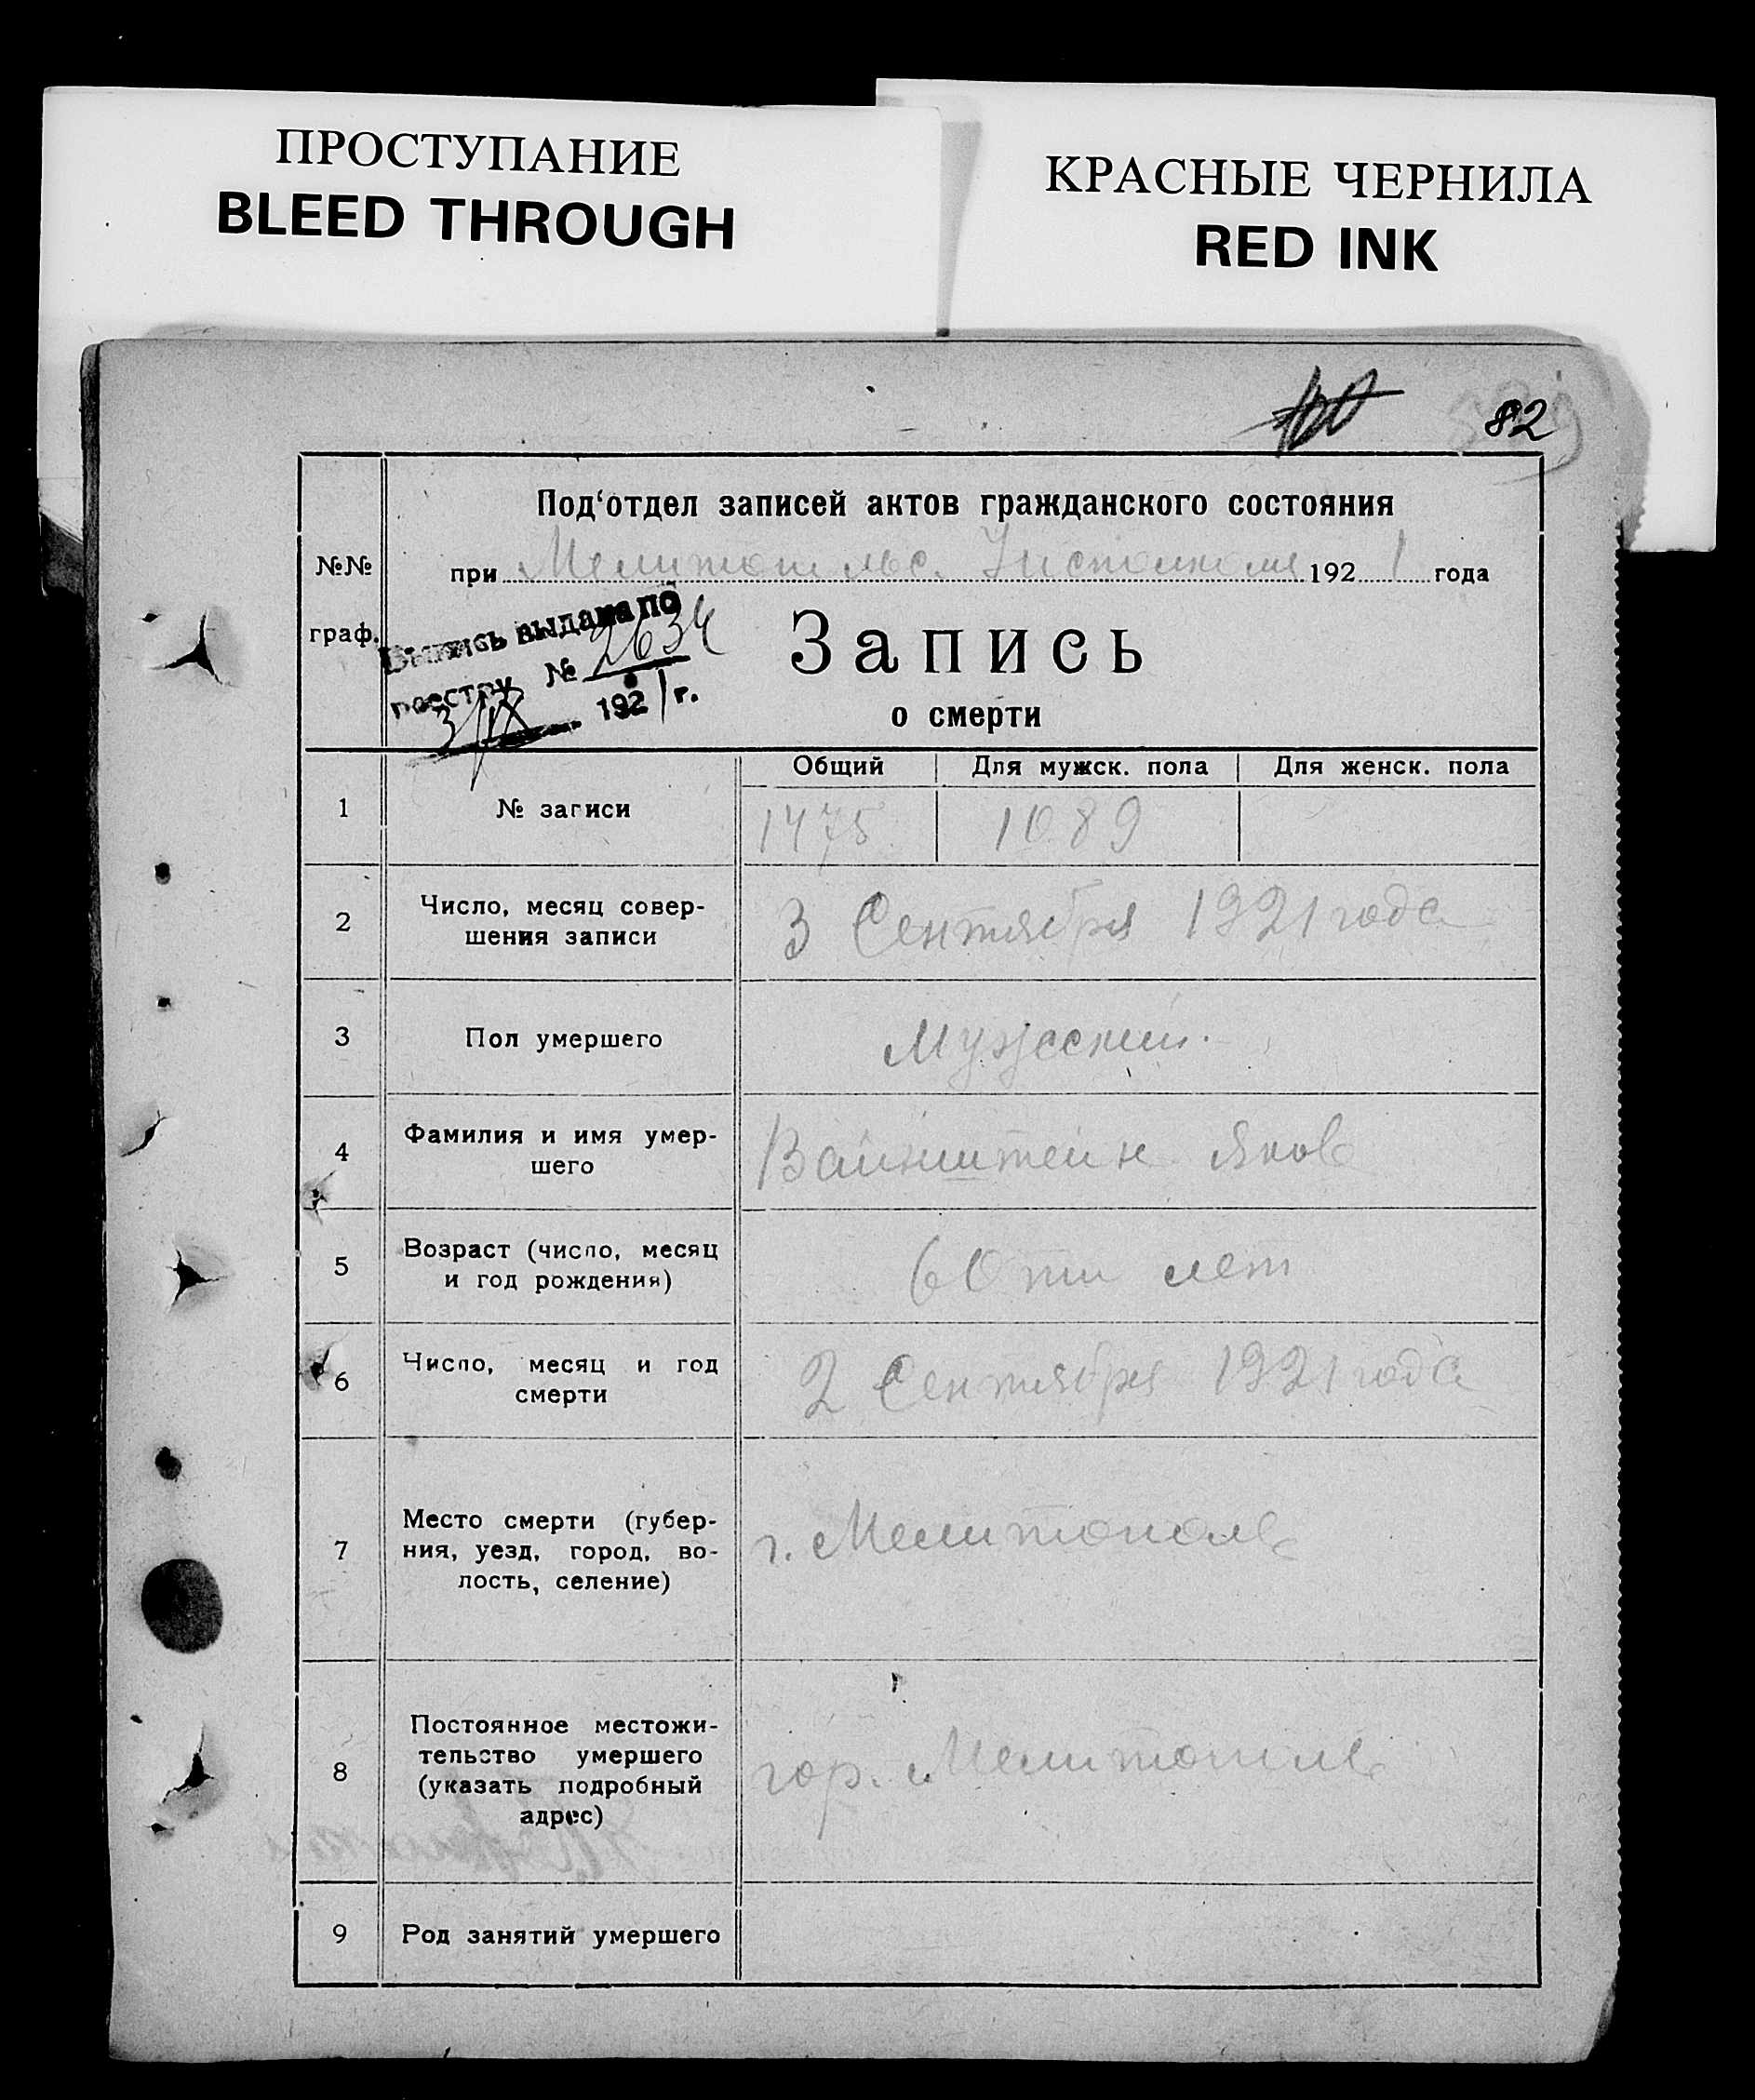 ПРОСТУПАНИЕ
BLEED THROUGH
КРАСНЫЕ ЧЕРНИЛА
RED INK
82
Под‘отдел записей актов гражданского состояния
№№
граф.
при Мелитопольс. 1921 года
Выпись выдана по
реестру № 2634
3/IX 1921 г.
Запись
о смерти
Общий Для мужск. пола Для женск. пола
1 № записи 1475 1089
2 Число, месяц совер-
шения записи
3 Сентября 1921 года
3 Пол умершего Мужской.
4 Фамилия и имя умер-
шего
Вайнштейн Яков
5 Возраст (число, месяц
и год рождения)
60 ти лет
6 Число, месяц и год
смерти
2 Сентября 1921 года
7 Место смерти (губер-
ния, уезд, город, во-
лость, селение)
г. Мелитополь
8 Постоянное местожи-
тельство умершего
(указать подробный
адрес)
гор. Мелитополь
9 Род занятий умершего